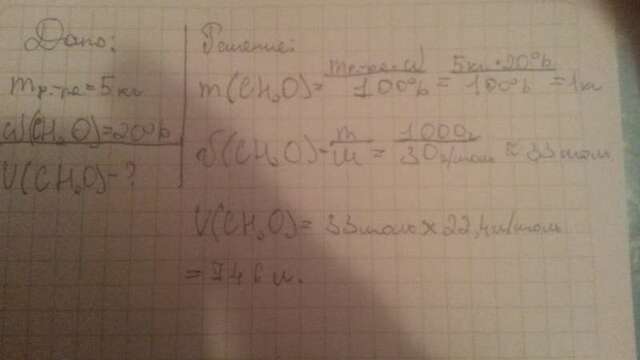 Дано:
mр-ра = 5 кг
ω(CH₂O) = 20%
V(CH₂O) - ?
Решение:
m(CH₂O) = mр-ра · ω / 100% = 5 кг · 20% / 100% = 1 кг
(CH₂O) = m / M = 1000 г / 30 г/моль ≈ 33 моль
V(CH₂O) = 33 моль × 22,4 л/моль
= 746 л.